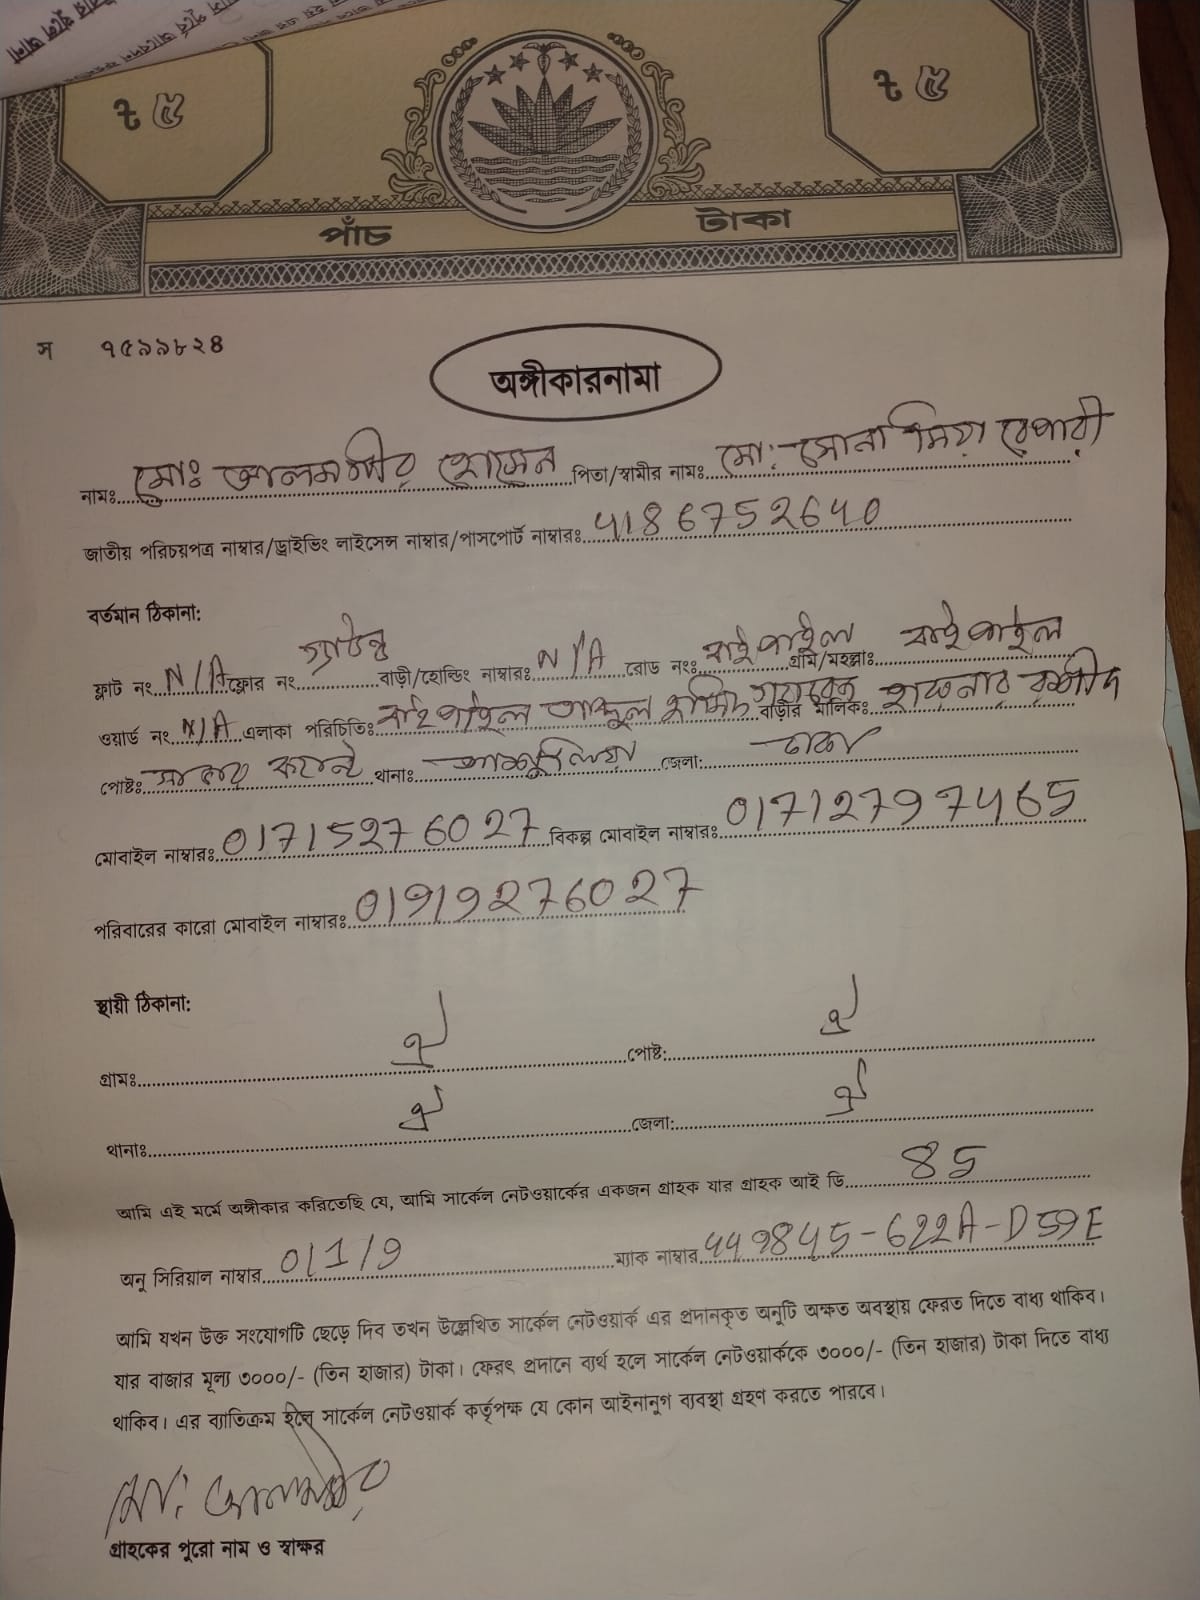 ৳ ৫ ৳ ৫
পাঁচ টাকা
স ৭৫৯৯৮২৪
অঙ্গীকারনামা
নামঃ মোঃ আলমগীর হোসেন পিতা/স্বামীর নামঃ মো: সোনা মিয়া বেপারী
জাতীয় পরিচয়পত্র নাম্বার/ড্রাইভিং লাইসেন্স নাম্বার/পাসপোর্ট নাম্বারঃ 4186752640
বর্তমান ঠিকানা:
ফ্লাট নং N/A ফ্লোর নং বাড়ী/হোল্ডিং নাম্বারঃ N/A রোড নংঃ বাইপাইল গ্রাম/মহল্লাঃ বাইপাইল
ওয়ার্ড নং N/A এলাকা পরিচিতিঃ বাইপাইল আব্দুল হামিদ বাড়ীর মালিকঃ
পোষ্টঃ থানাঃ আশুলিয়া জেলা: ঢাকা
মোবাইল নাম্বারঃ 01715276027 বিকল্প মোবাইল নাম্বারঃ 01712797465
পরিবারের কারো মোবাইল নাম্বারঃ 01919276027
স্থায়ী ঠিকানা:
গ্রামঃ ঐ পোষ্ট: ঐ
থানাঃ ঐ জেলা: ঐ
আমি এই মর্মে অঙ্গীকার করিতেছি যে, আমি সার্কেল নেটওয়ার্কের একজন গ্রাহক যার গ্রাহক আই ডি 85
অনু সিরিয়াল নাম্বার 0/1/9 ম্যাক নাম্বার 449845-622A-D59E
আমি যখন উক্ত সংযোগটি ছেড়ে দিব তখন উল্লেখিত সার্কেল নেটওয়ার্ক এর প্রদানকৃত অনুটি অক্ষত অবস্থায় ফেরত দিতে বাধ্য থাকিব।
যার বাজার মূল্য ৩০০০/- (তিন হাজার) টাকা। ফেরৎ প্রদানে ব্যর্থ হলে সার্কেল নেটওয়ার্ককে ৩০০০/- (তিন হাজার) টাকা দিতে বাধ্য
থাকিব। এর ব্যাতিক্রম হলে সার্কেল নেটওয়ার্ক কর্তৃপক্ষ যে কোন আইনানুগ ব্যবস্থা গ্রহণ করতে পারবে।
মো: আলমগীর
গ্রাহকের পুরো নাম ও স্বাক্ষর